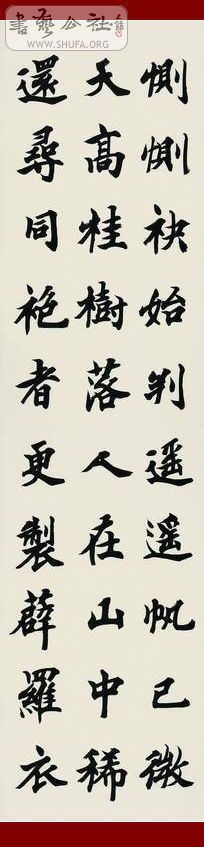 書藝公社
WWW.SHUFA.ORG
惻惻袂始判遥遥帆已微
天高桂樹落人在山中稀
還尋同袍者更製薜羅衣